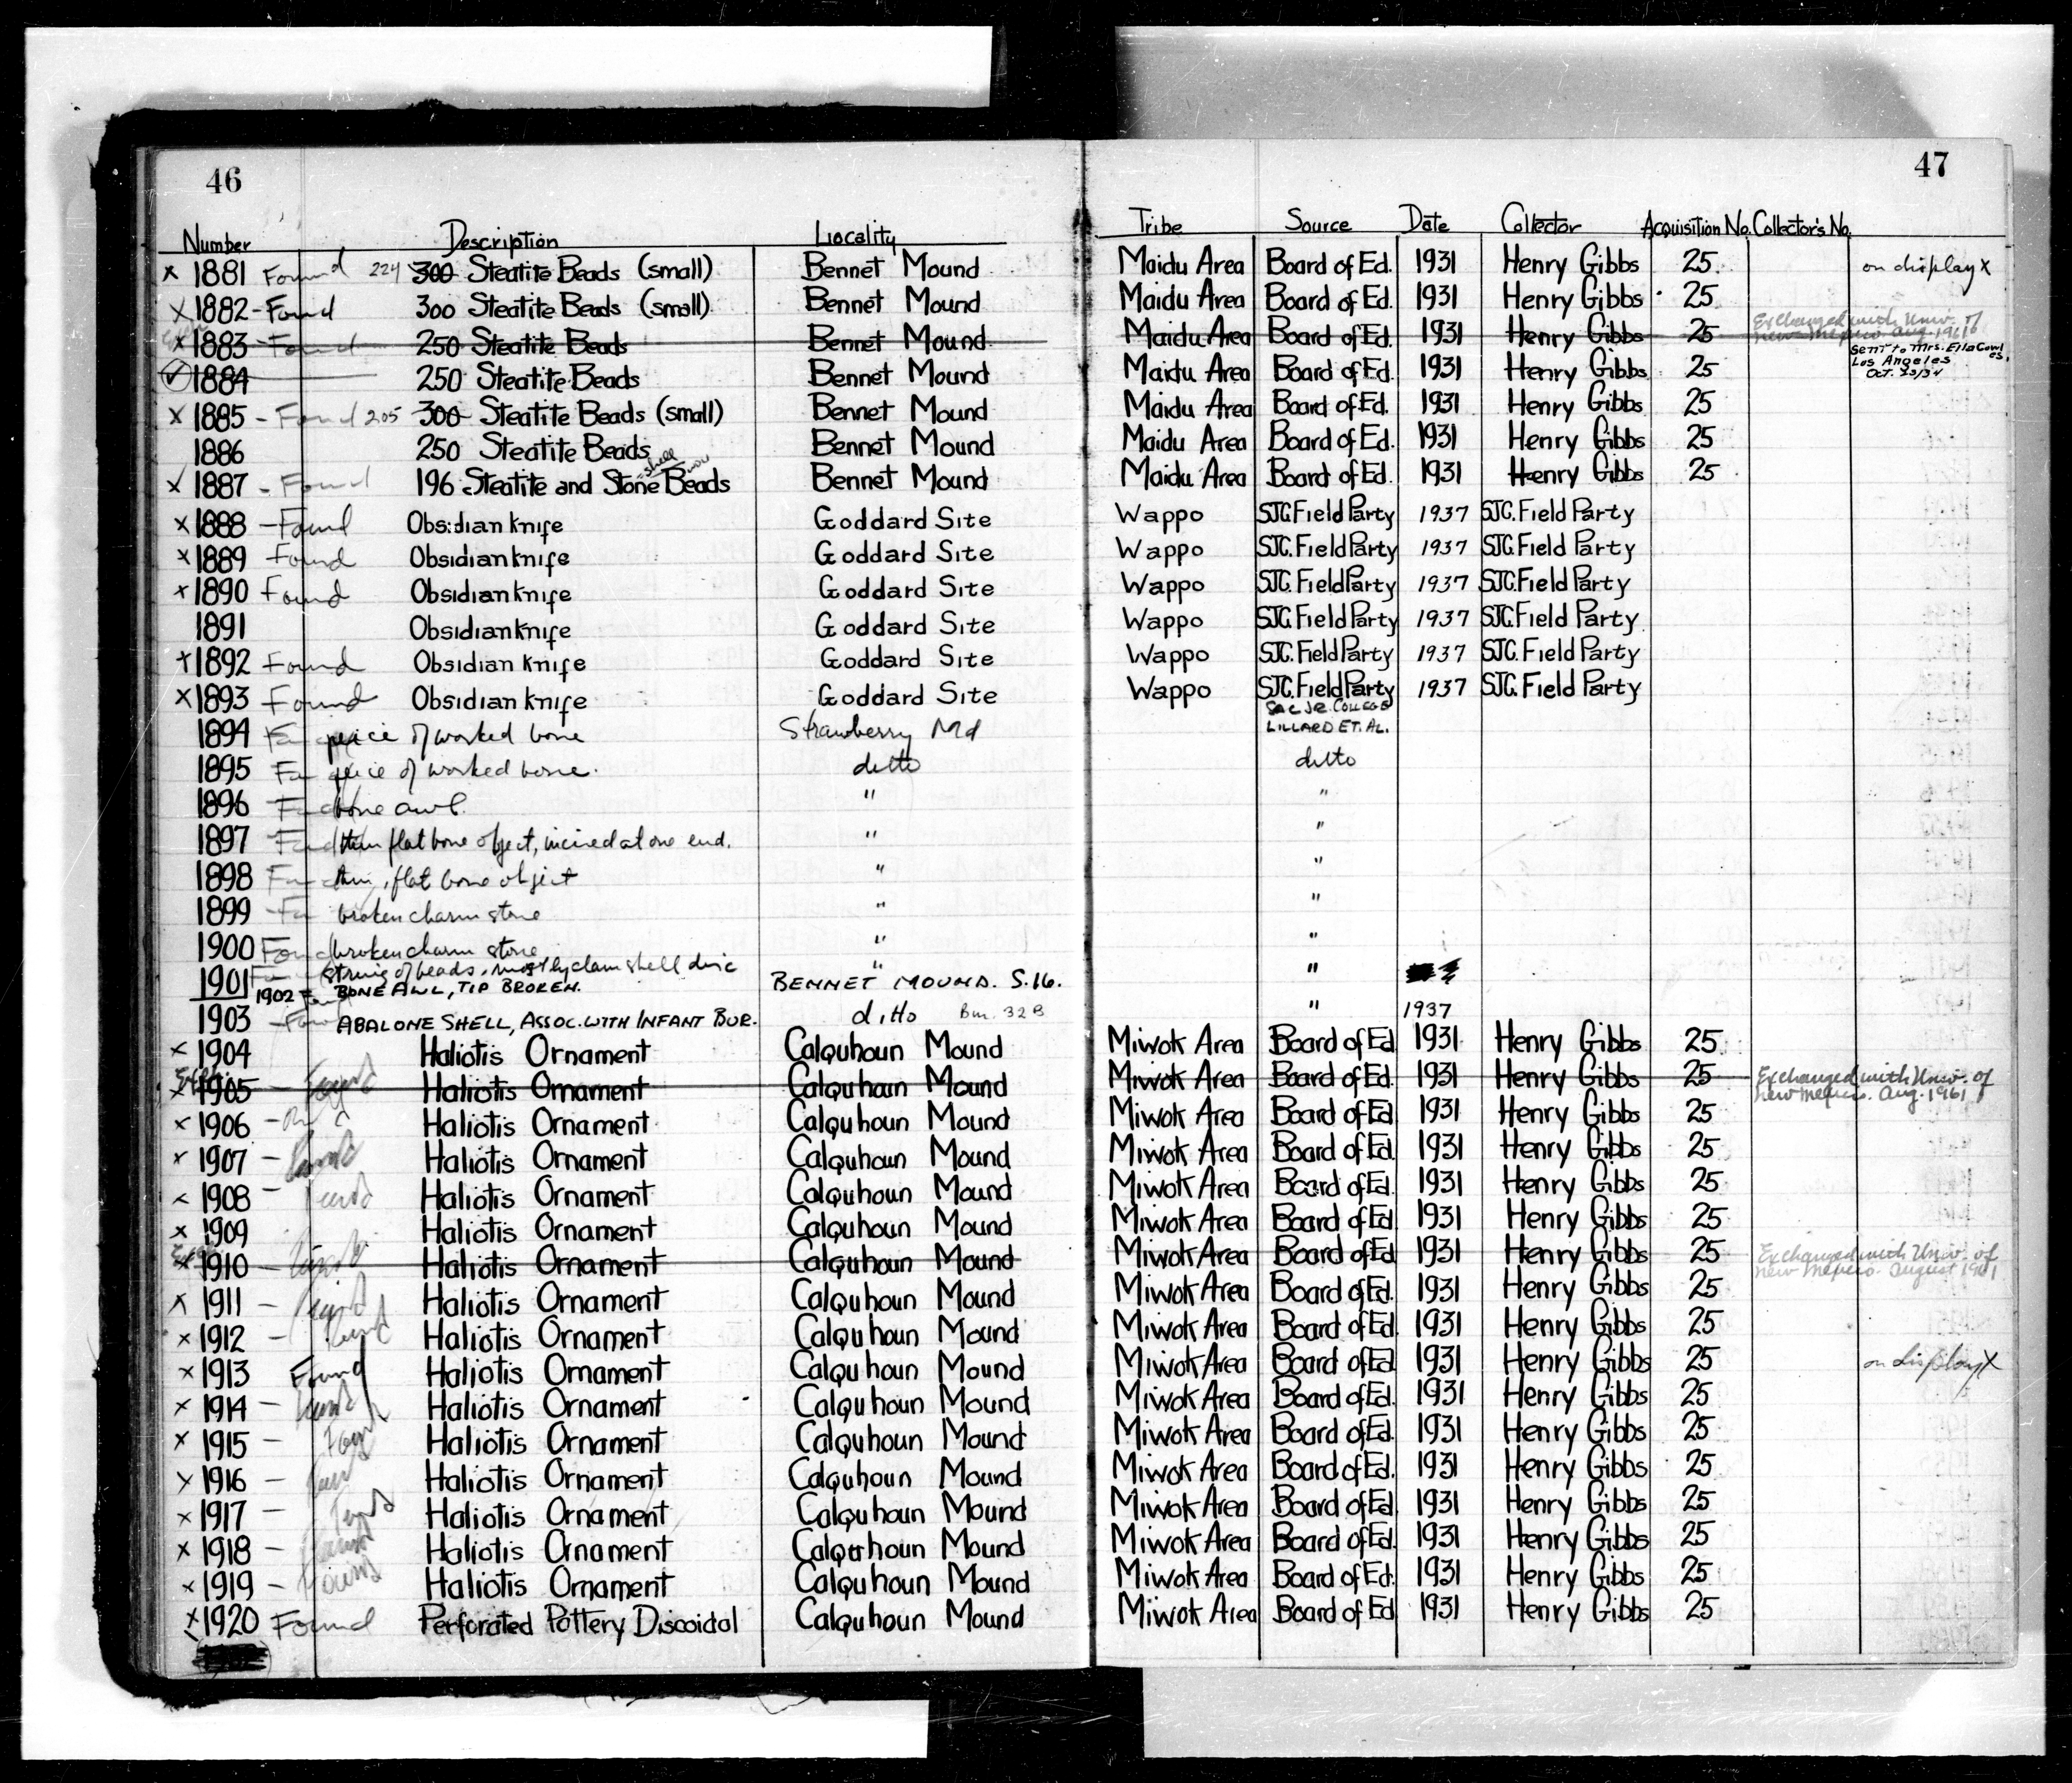 46
47
Number Description Locality Tribe Source Date Collector Acquisition No. Collector's No.
x 1881 Found 224 300 Steatite Beads (small) Bennet Mound Maidu Area Board of Ed. 1931 Henry Gibbs 25 on display x
x 1882 - Found 300 Steatite Beads (small) Bennet Mound Maidu Area Board of Ed. 1931 Henry Gibbs 25
Exch x 1883 - Found 250 Steatite Beads Bennet Mound Maidu Area Board of Ed. 1931 Henry Gibbs 25 Exchanged with Univ. of New Mexico Aug. 1961
✓ 1884 250 Steatite Beads Bennet Mound Maidu Area Board of Ed. 1931 Henry Gibbs 25 Sent to Mrs. Ella Cowles, Los Angeles Oct. 23/34
x 1885 - Found 205 300 Steatite Beads (small) Bennet Mound Maidu Area Board of Ed. 1931 Henry Gibbs 25
1886 250 Steatite Beads Bennet Mound Maidu Area Board of Ed. 1931 Henry Gibbs 25
x 1887 - Found 196 Steatite and Stone shell Beads Bennet Mound Maidu Area Board of Ed. 1931 Henry Gibbs 25
x 1888 - Found Obsidian knife Goddard Site Wappo SJC. Field Party 1937 SJC. Field Party
x 1889 Found Obsidian knife Goddard Site Wappo SJC. Field Party 1937 SJC. Field Party
x 1890 Found Obsidian knife Goddard Site Wappo SJC. Field Party 1937 SJC. Field Party
1891 Obsidian knife Goddard Site Wappo SJC. Field Party 1937 SJC. Field Party
x 1892 Found Obsidian knife Goddard Site Wappo SJC. Field Party 1937 SJC. Field Party
x 1893 Found Obsidian knife Goddard Site Wappo SJC. Field Party 1937 SJC. Field Party
1894 peice of worked bone Strawberry Md SAC JR. COLLEGE LILLARD ET. AL.
1895 peice of worked bone. ditto ditto
1896 Found bone awl. " "
1897 Found thin flat bone object, incised at one end. " "
1898 Found thin, flat bone object " "
1899 broken charm stone " "
1900 Found broken charm stone " "
1901 string of beads, mostly clam shell disc " "
1902 Found BONE AWL, TIP BROKEN. BENNET MOUND. S.16.
1903 - Found ABALONE SHELL, ASSOC. WITH INFANT BUR. ditto Bur. 32B " 1937
x 1904 Haliotis Ornament Calquhoun Mound Miwok Area Board of Ed 1931 Henry Gibbs 25
Exch. x 1905 - Found Haliotis Ornament Calquhoun Mound Miwok Area Board of Ed. 1931 Henry Gibbs 25 Exchanged with Univ. of New Mexico. Aug. 1961
x 1906 - Haliotis Ornament Calquhoun Mound Miwok Area Board of Ed 1931 Henry Gibbs 25
x 1907 - Found Haliotis Ornament Calquhoun Mound Miwok Area Board of Ed 1931 Henry Gibbs 25
x 1908 - Found Haliotis Ornament Calquhoun Mound Miwok Area Board of Ed. 1931 Henry Gibbs 25
x 1909 Haliotis Ornament Calquhoun Mound Miwok Area Board of Ed 1931 Henry Gibbs 25
Exch x 1910 - Found Haliotis Ornament Calquhoun Mound Miwok Area Board of Ed 1931 Henry Gibbs 25 Exchanged with Univ. of New Mexico. August 1961
x 1911 - Found Haliotis Ornament Calquhoun Mound Miwok Area Board of Ed. 1931 Henry Gibbs 25
x 1912 - Found Haliotis Ornament Calquhoun Mound Miwok Area Board of Ed. 1931 Henry Gibbs 25
x 1913 Found Haliotis Ornament Calquhoun Mound Miwok Area Board of Ed 1931 Henry Gibbs 25 on display X
x 1914 - Found Haliotis Ornament Calquhoun Mound Miwok Area Board of Ed. 1931 Henry Gibbs 25
x 1915 - Found Haliotis Ornament Calquhoun Mound Miwok Area Board of Ed. 1931 Henry Gibbs 25
x 1916 - Found Haliotis Ornament Calquhoun Mound Miwok Area Board of Ed. 1931 Henry Gibbs 25
x 1917 - Found Haliotis Ornament Calquhoun Mound Miwok Area Board of Ed. 1931 Henry Gibbs 25
x 1918 - Found Haliotis Ornament Calquhoun Mound Miwok Area Board of Ed. 1931 Henry Gibbs 25
x 1919 - Found Haliotis Ornament Calquhoun Mound Miwok Area Board of Ed. 1931 Henry Gibbs 25
x 1920 Found Perforated Pottery Discoidal Calquhoun Mound Miwok Area Board of Ed 1931 Henry Gibbs 25